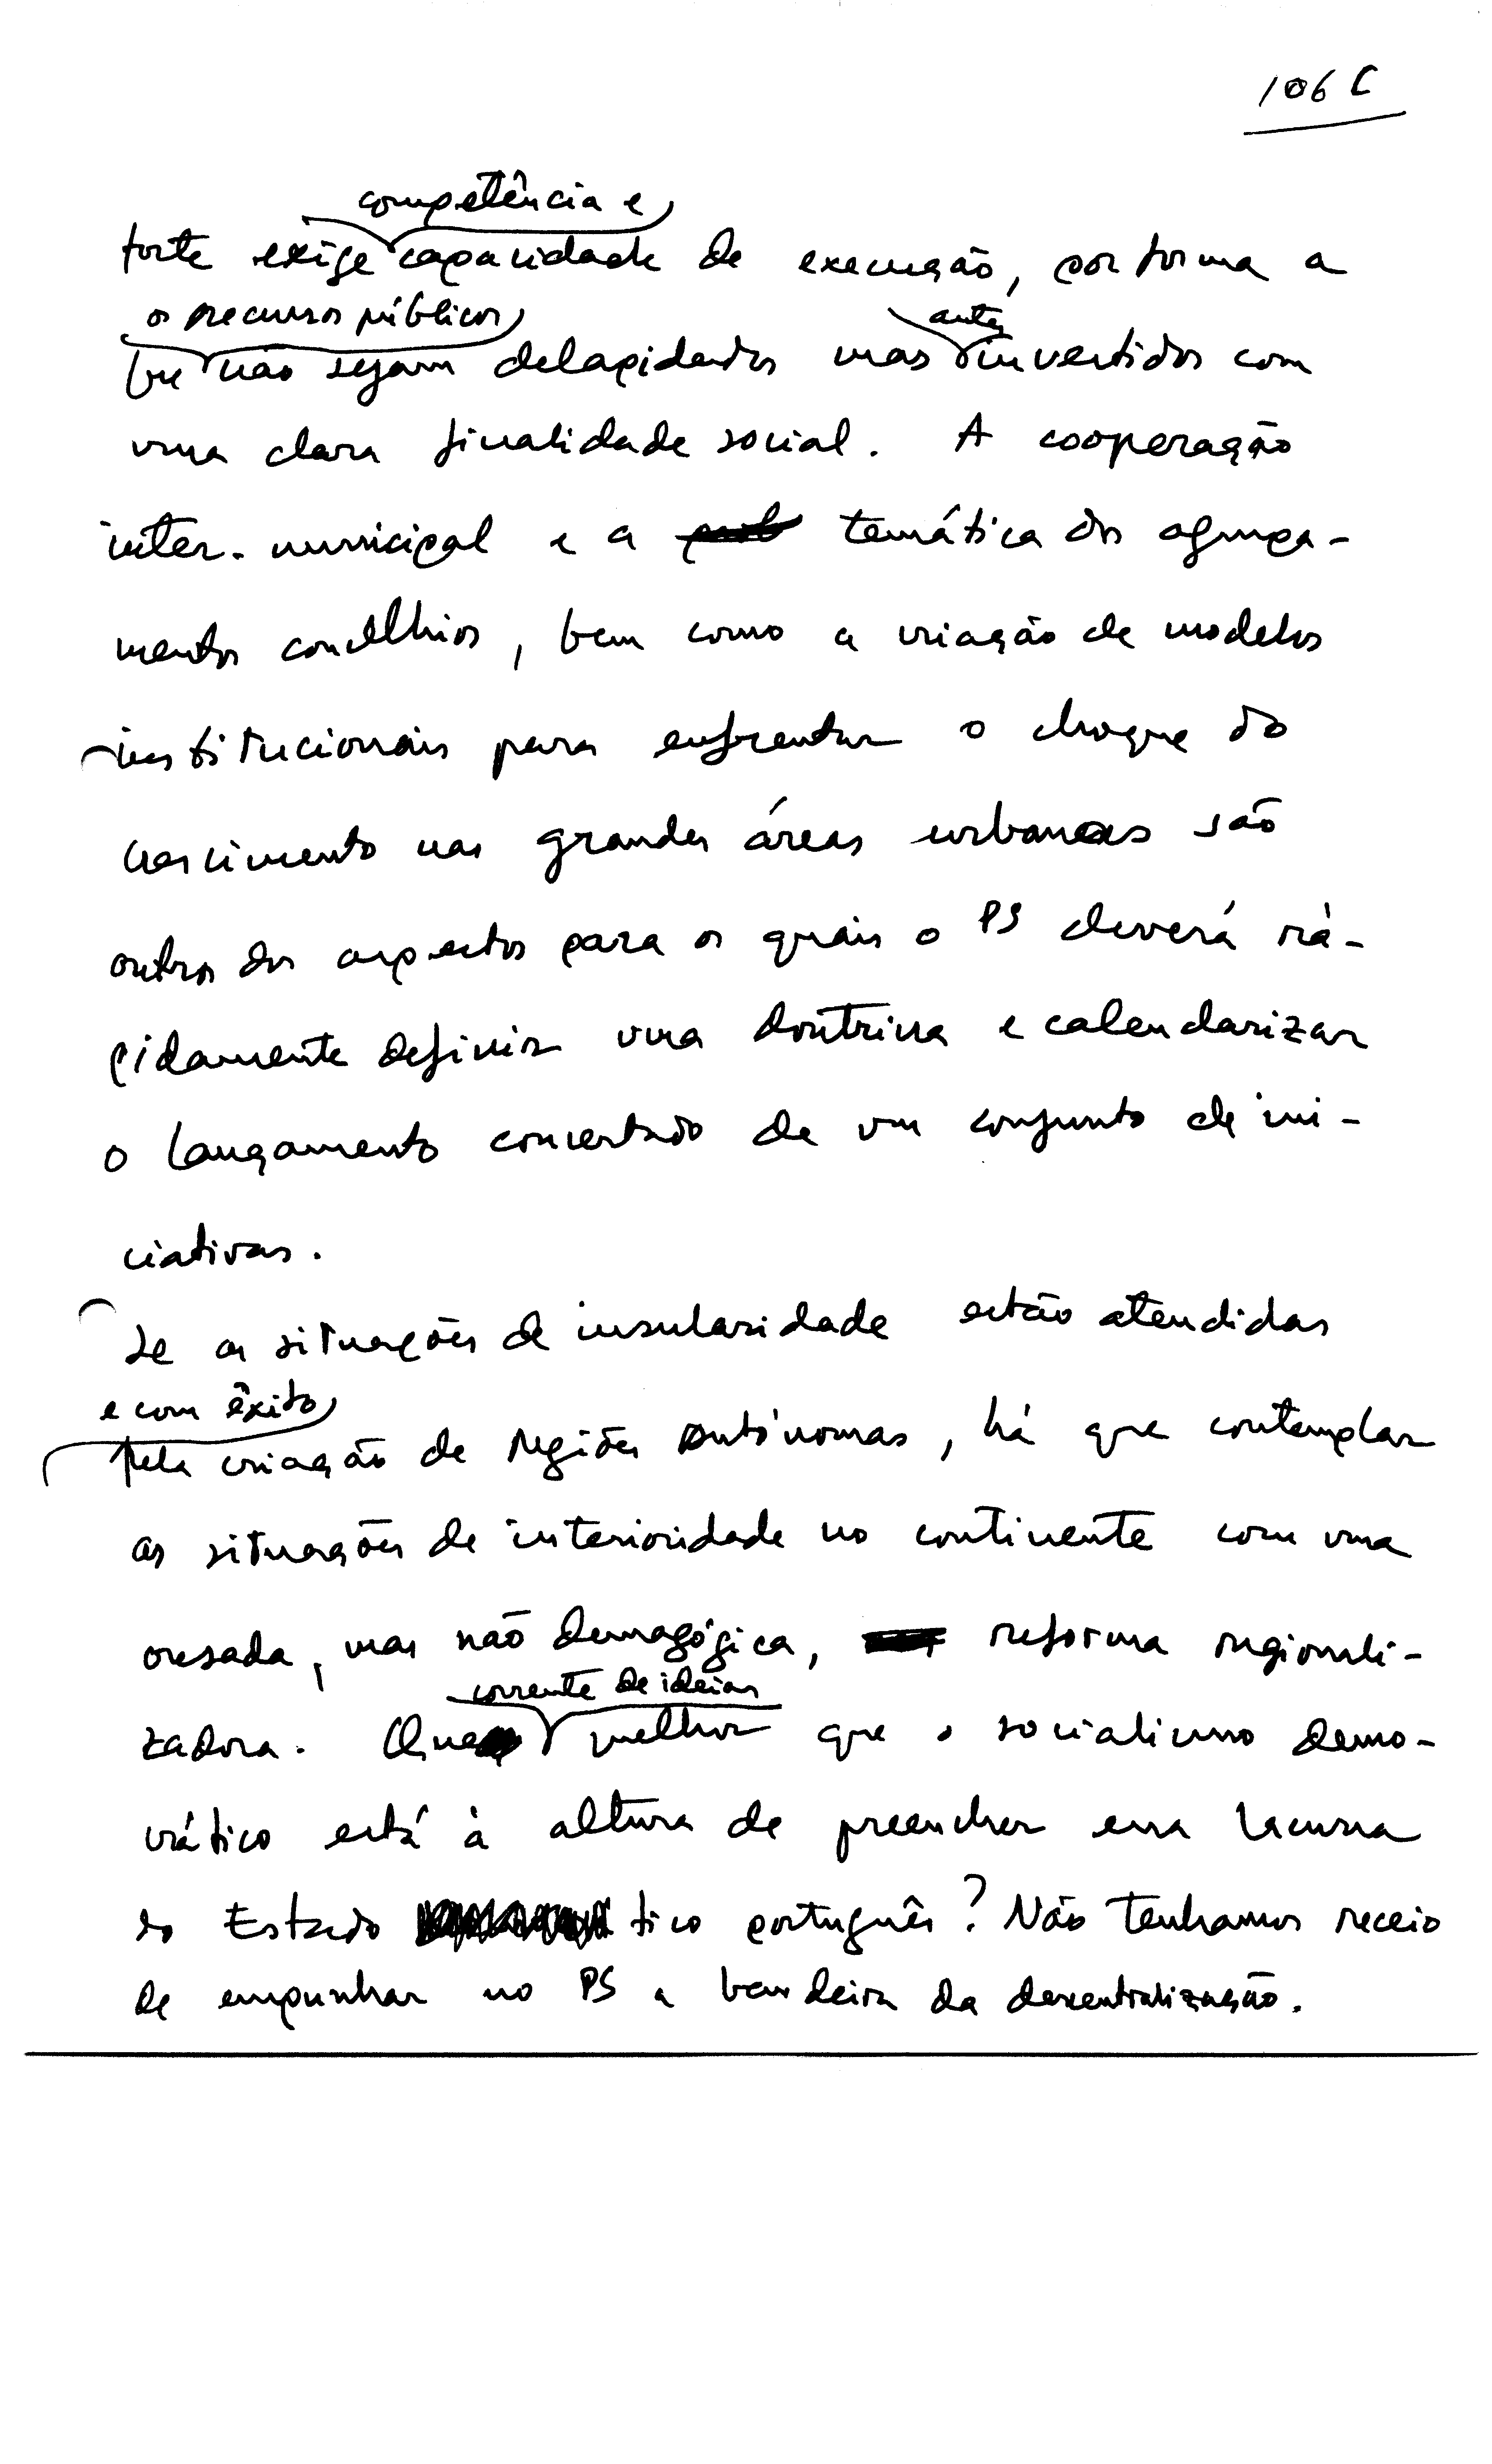 106 C
competência e
forte exige capacidade de execução, por forma a
os recursos públicos
que não sejam delapidados mas invertidos com
antes
uma clara finalidade social. A cooperação
inter-municipal e a temática dos agrupa-
mentos concelhios, bem como a criação de modelos
institucionais para enfrentar o choque do
crescimento nas grandes áreas urbanas são
outros dos aspectos para os quais o PS deverá rá-
pidamente definir uma doutrina e calendarizar
o lançamento concertado de um conjunto de ini-
ciativas.
Se as situações de insularidade estão atendidas
e com êxito
pela criação de regiões autónomas, há que contemplar
as situações de interioridade no continente com uma
ousada, mas não demagógica, reforma regionali-
zadora. Que melhor que o socialismo demo-
corrente de ideias
crático está à altura de preencher essa lacuna
do Estado tico português? Não tenhamos receio
de empunhar no PS a bandeira da descentralização.